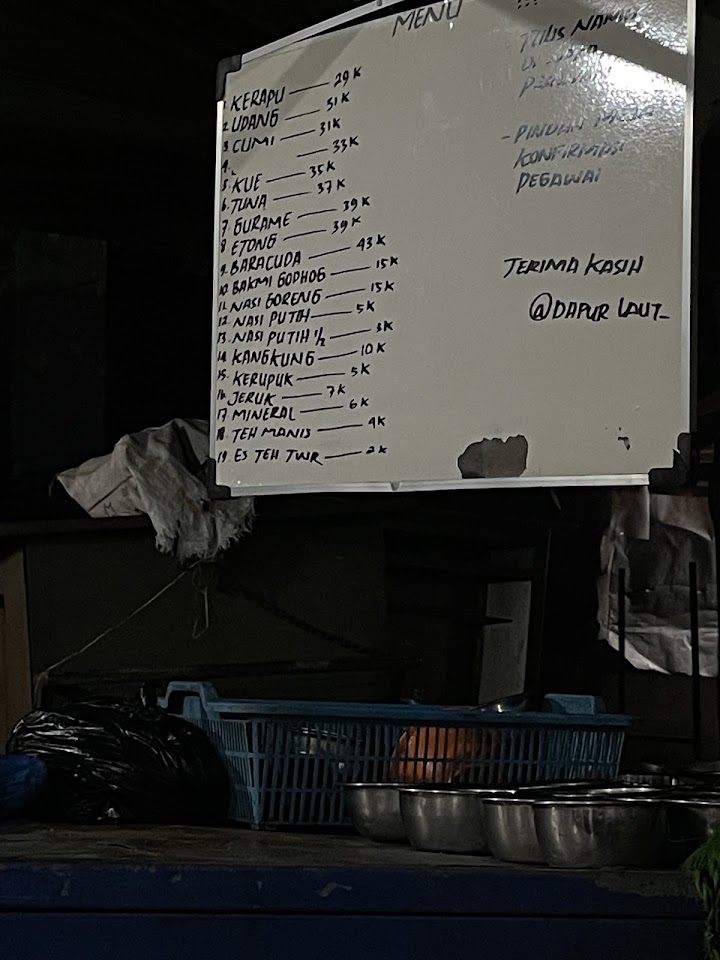 MENU
1. KERAPU — 29K
2. UDANG — 31K
3. CUMI — 31K
4. — 33K
5. KUE — 35K
6. TUNA — 37K
7. GURAME — 39K
8. ETONG — 39K
9. BARACUDA — 43K
10. BAKMI GODHOG — 15K
11. NASI GORENG — 15K
12. NASI PUTIH — 5K
13. NASI PUTIH 1/2 — 3K
14. KANGKUNG — 10K
15. KERUPUK — 5K
16. JERUK — 7K
17. MINERAL — 6K
18. TEH MANIS — 4K
19. ES TEH TWR — 2K
!!!
TULIS NAMA
- PINDAH
KONFIRMASI
PEGAWAI
TERIMA KASIH
@DAPUR LAUT_